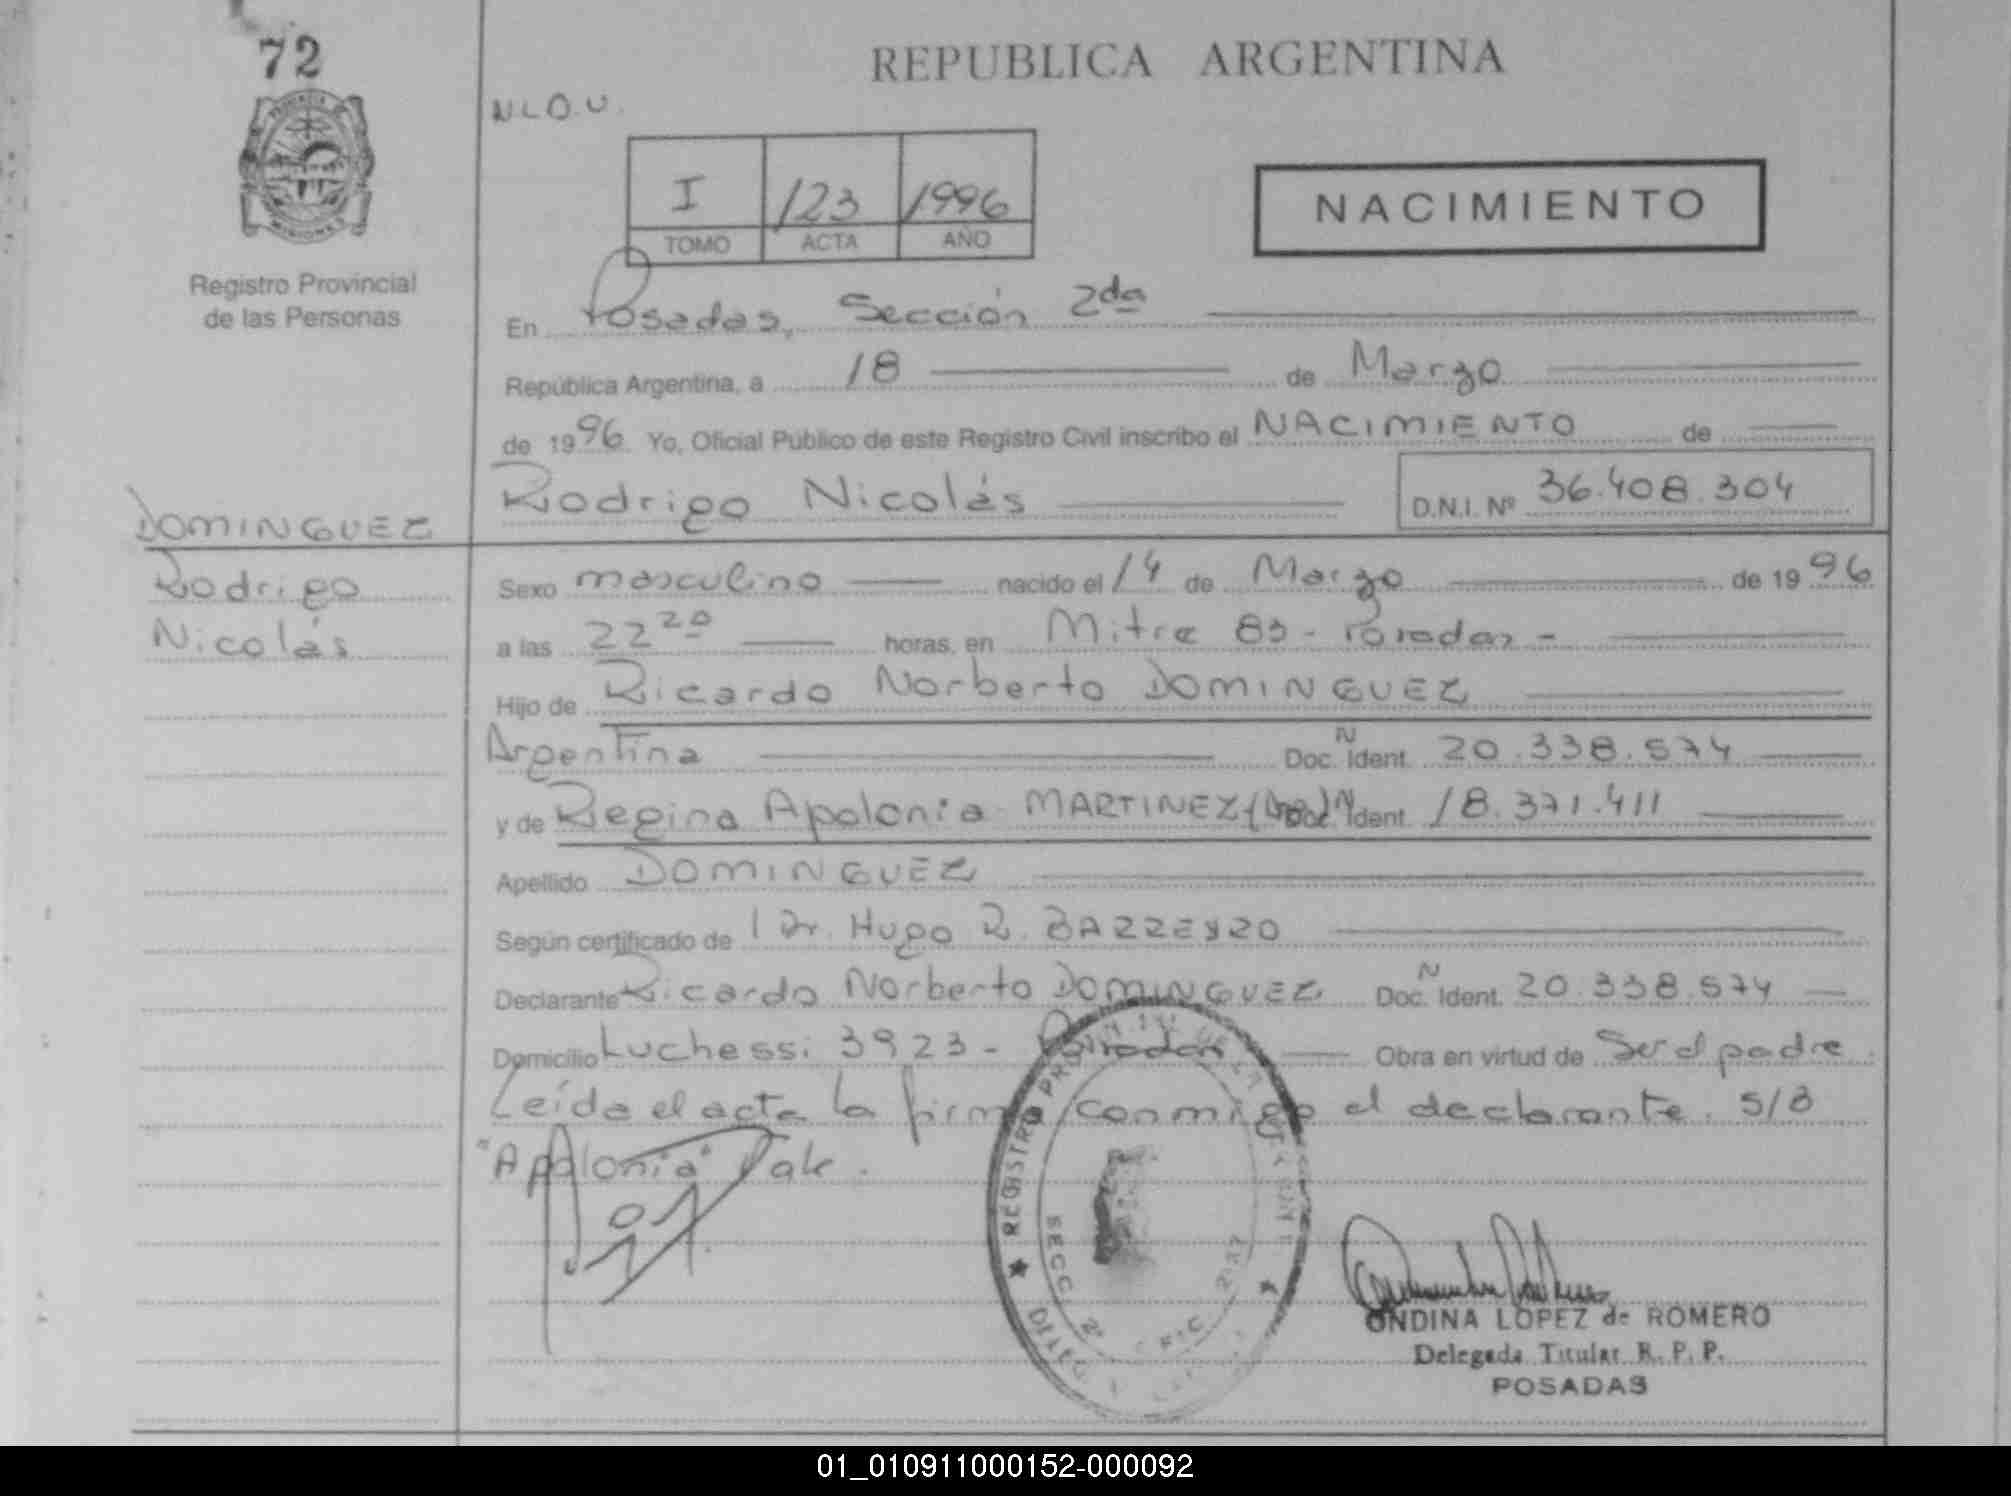 72
REPUBLICA ARGENTINA
N.L.O.U.
I 123 1996
TOMO ACTA AÑO
NACIMIENTO
PROVINCIA
MISIONES
Registro Provincial
de las Personas
En Posadas, Sección 2da
República Argentina, a 18 de Marzo
de 1996 Yo, Oficial Público de este Registro Civil inscribo el NACIMIENTO de
Rodrigo Nicolás D.N.I. Nº 36.408.304
DOMINGUEZ
Rodrigo
Nicolás
Sexo masculino nacido el 14 de Marzo de 1996
a las 22 20 horas, en Mitre 83 - Posadas -
Hijo de Ricardo Norberto DOMINGUEZ
Argentina Doc. N Ident. 20.338.574
y de Regina Apolonia MARTINEZ Doc. N Ident. 18.371.411
Apellido DOMINGUEZ
Según certificado de l Dr. Hugo R.
Declarante Ricardo Norberto DOMINGUEZ Doc. N Ident. 20.338.574
Domicilio Luchessi 3923 - Posadas Obra en virtud de Ser el padre
Leída el acta la firma conmigo el declarante. S/B
"Apolonia" Vale.
REGISTRO PROVINCIAL DE LAS PERSONAS
SECC 2ª
ONDINA LOPEZ de ROMERO
Delegada Titular R. P. P.
POSADAS
01_010911000152-000092